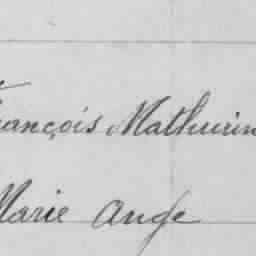 François Mathurin
Marie Ange